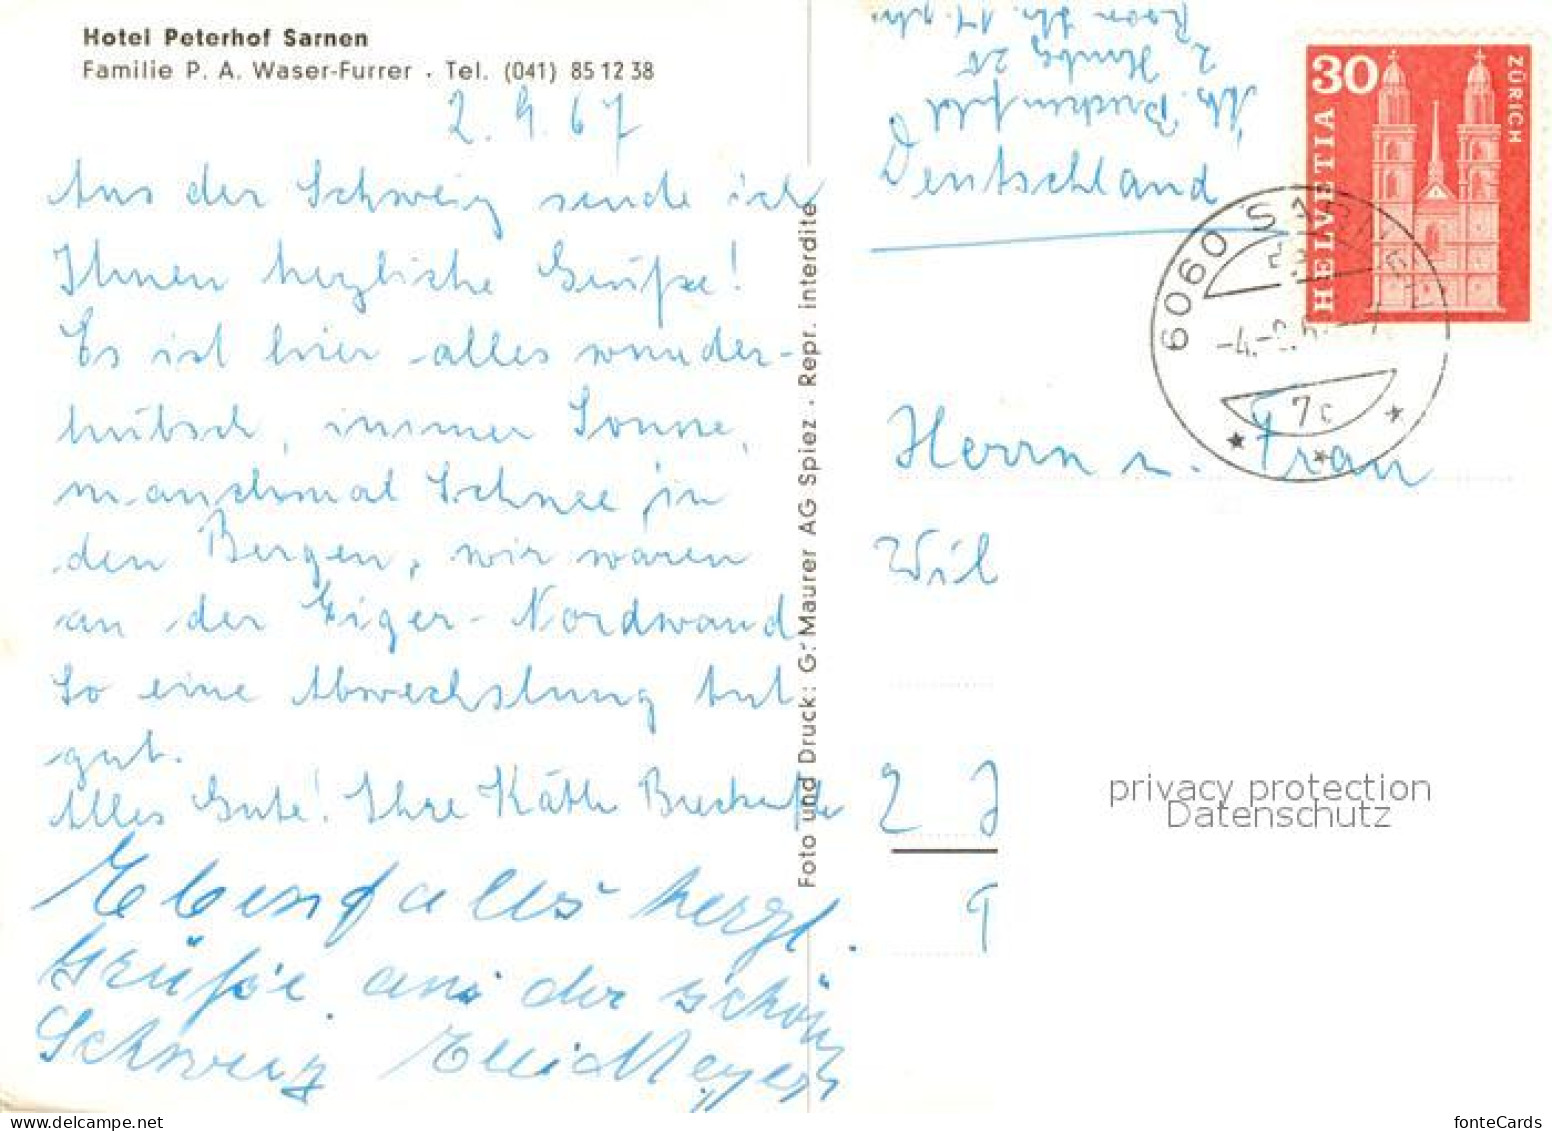 Hotel Peterhof Sarnen
Familie P. A. Waser-Furrer . Tel. (041) 85 12 38
2. 9. 67
Aus der Schweiz sende ich
Ihnen herzliche Grüße!
Es ist hier alles wunder-
hübsch, immer Sonne,
manchmal Schnee in
den Bergen, wir waren
an der Eiger-Nordwand
So eine Abwechslung tut
gut.
Alles Gute! Ihre Käthe
Ebenfalls herzl.
Grüße aus der schön
Schweiz
Foto und Druck: G. Maurer AG Spiez . Repr. interdite
2 Hambg 25
Deutschland
HELVETIA
30
ZÜRICH
6060 SARNEN
Herrn u. Frau
Wil
2 J
privacy protection
Datenschutz
fonteCards